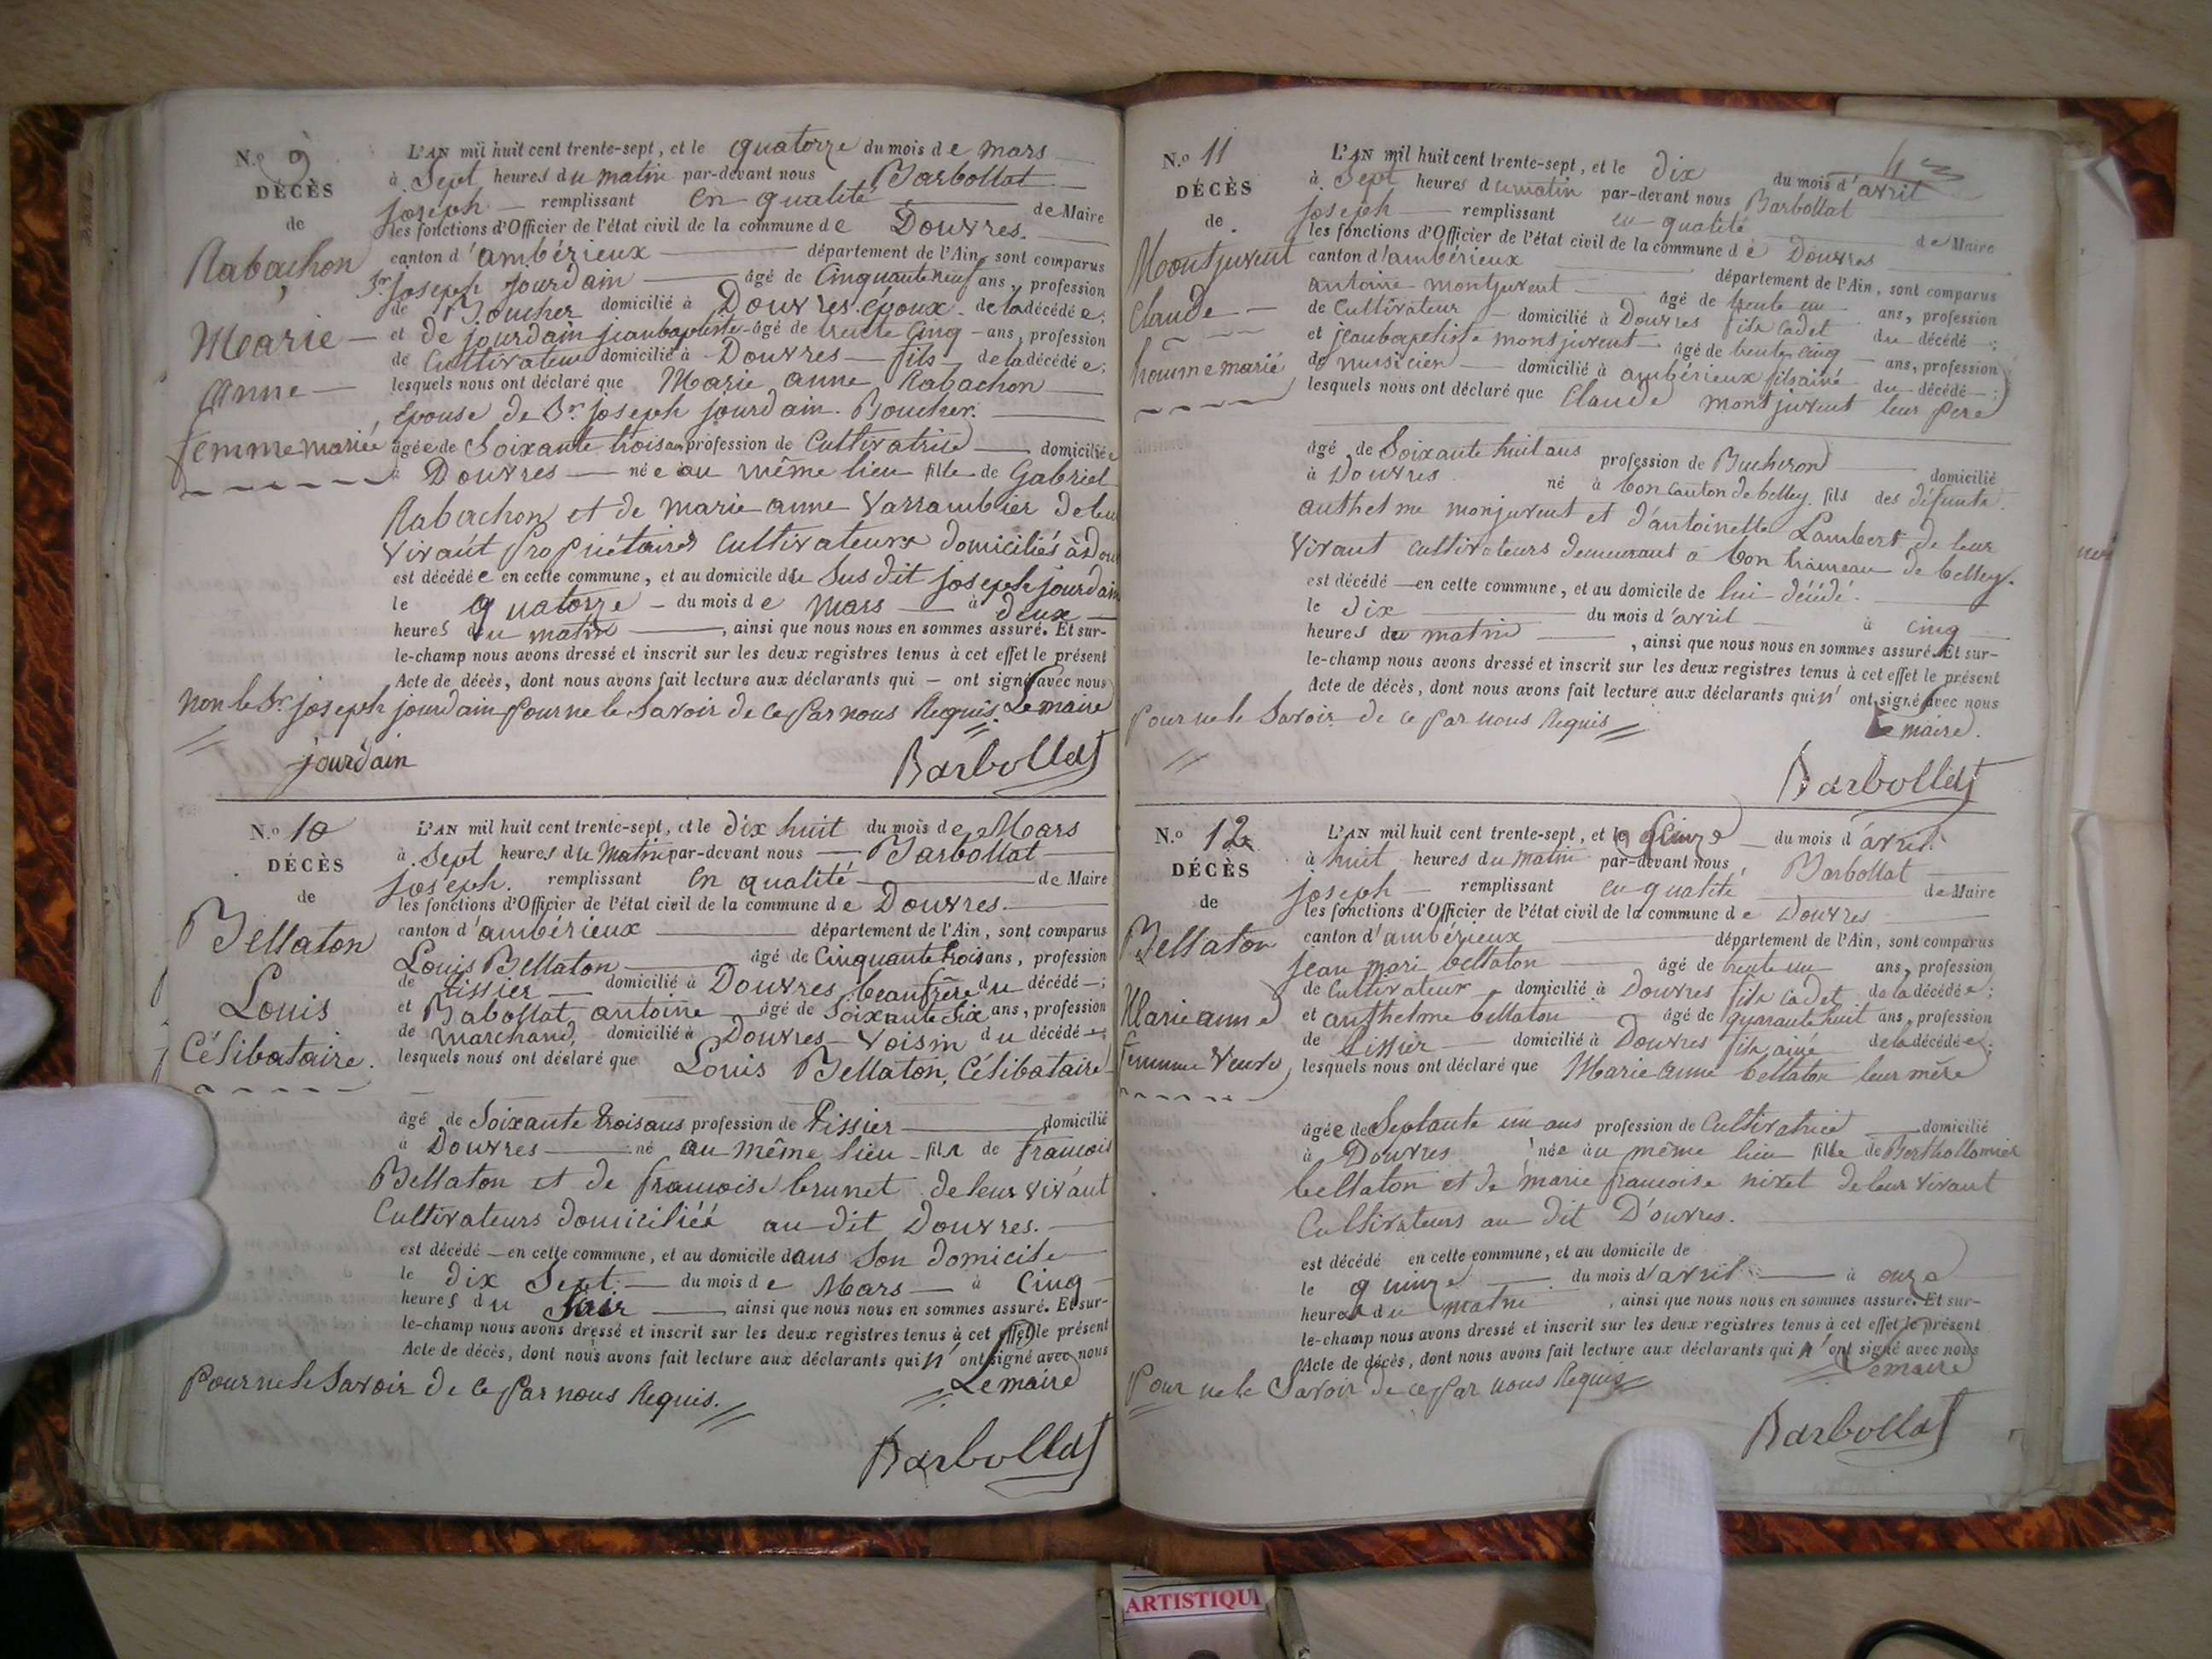 N.o 9
DÉCÈS
de
Rabachon
Marie
anne
femme mariée
L'AN mil huit cent trente-sept, et le quatorze du mois de mars
à Sept heures du matin par-devant nous Barbollat
joseph remplissant en qualité de Maire
les fonctions d'Officier de l'état civil de la commune de Douvres.
canton d'ambérieux département de l'Ain, sont comparus
Sr joseph jourdain âgé de Cinquante neuf ans, profession
de Boucher domicilié à Douvres époux de la décédée;
et de jourdain jeanbaptiste âgé de trente Cinq ans, profession
de Cultivateur domicilié à Douvres fils de la décédée;
lesquels nous ont déclaré que Marie anne Rabachon
épouse de Sr joseph jourdain Boucher.
âgée de Soixante trois an profession de Cultivatrice domiciliée
à Douvres née au même lieu fille de Gabriel
Rabachon et de marie anne Varrambier de leu
vivant Propriétaires Cultivateurs domiciliés à Dou
est décédée en cette commune, et au domicile du Susdit joseph jourdain
le quatorze du mois de mars à deux
heures du matin, ainsi que nous nous en sommes assuré. Et sur-
le-champ nous avons dressé et inscrit sur les deux registres tenus à cet effet le présent
Acte de décès, dont nous avons fait lecture aux déclarants qui ont signé avec nous
non le Sr joseph jourdain Pour ne le Savoir de ce Par nous Requis. Le maire
jourdain Barbollat
N.o 10
DÉCÈS
de
Bellaton
Louis
Célibataire.
L'AN mil huit cent trente-sept, et le dix huit du mois de Mars
à Sept heures du Matin par-devant nous Barbollat
joseph. remplissant en qualité de Maire
les fonctions d'Officier de l'état civil de la commune de Douvres.
canton d'ambérieux département de l'Ain, sont comparus
Louis Bellaton âgé de Cinquante trois ans, profession
de tissier domicilié à Douvres beaufrère du décédé;
et Babollat antoine âgé de Soixante Six ans, profession
de marchand, domicilié à Douvres Voisin du décédé;
lesquels nous ont déclaré que Louis Bellaton, Célibataire
âgé de Soixante trois ans profession de tissier domicilié
à Douvres né au même lieu fils de francois
Bellaton et de francoise brunet de leur vivant
Cultivateurs domiciliés au dit Douvres.
est décédé en cette commune, et au domicile dans Son domicile
le dix Sept. du mois de Mars à Cinq
heures du Soir ainsi que nous nous en sommes assuré. Et sur-
le-champ nous avons dressé et inscrit sur les deux registres tenus à cet effet le présent
Acte de décès, dont nous avons fait lecture aux déclarants qui n'ont signé avec nous
Pour ne le Savoir de ce Par nous Requis. Le maire
Barbollat
N.o 11
DÉCÈS
de
Montjuvent
Claude
homme marié
L'AN mil huit cent trente-sept, et le dix du mois d'avril
à Sept heures du matin par-devant nous Barbollat
joseph remplissant en qualité de Maire
les fonctions d'Officier de l'état civil de la commune de Douvres
canton d'ambérieux département de l'Ain, sont comparus
antoine montjuvent âgé de trente un ans, profession
de Cultivateur domicilié à Douvres fils cadet du décédé;
et jeanbaptiste montjuvent âgé de trente cinq ans, profession
de musicien domicilié à ambérieux fils ainé du décédé;
lesquels nous ont déclaré que Claude montjuvent leur pere
âgé de Soixante huit ans profession de Bucheron domicilié
à Douvres né à bon canton de belley fils des défunts
anthelme monjuvent et d'antoinette Lambert de leur
vivant cultivateurs demeurant à bon hameau de belley.
est décédé en cette commune, et au domicile de lui décédé.
le dix du mois d'avril à cinq
heures du matin, ainsi que nous nous en sommes assuré. Et sur-
le-champ nous avons dressé et inscrit sur les deux registres tenus à cet effet le présent
Acte de décès, dont nous avons fait lecture aux déclarants qui n'ont signé avec nous
Pour ne le Savoir de ce Par nous Requis Le maire.
Barbollat
N.o 12
DÉCÈS
de
Bellaton
Marie anne
femme Veuve
L'AN mil huit cent trente-sept, et le quinze du mois d'avril
à huit heures du matin par-devant nous, Barbollat
joseph remplissant en qualité de Maire
les fonctions d'Officier de l'état civil de la commune de Douvres
canton d'ambérieux département de l'Ain, sont comparus
jean mari bellaton âgé de trente un ans, profession
de Cultivateur domicilié à Douvres fils cadet de la décédée;
et anthelme bellaton âgé de quarante huit ans, profession
de tissier domicilié à Douvres fils ainé de la décédée;
lesquels nous ont déclaré que Marie anne bellaton leur mère
âgée de Septante un ans profession de Cultivatrice domicilié
à Douvres née au même lieu fille de Bertholomier
bellaton et de marie francoise nivet de leur vivant
Cultivateurs au dit D'ouvres.
est décédé en cette commune, et au domicile de
le quinze du mois d'avril à onze
heures du matin, ainsi que nous nous en sommes assuré. Et sur-
le-champ nous avons dressé et inscrit sur les deux registres tenus à cet effet le présent
Acte de décès, dont nous avons fait lecture aux déclarants qui n'ont signé avec nous
Pour ne le Savoir de ce Par nous Requis Le maire
Barbollat
ARTISTIQU